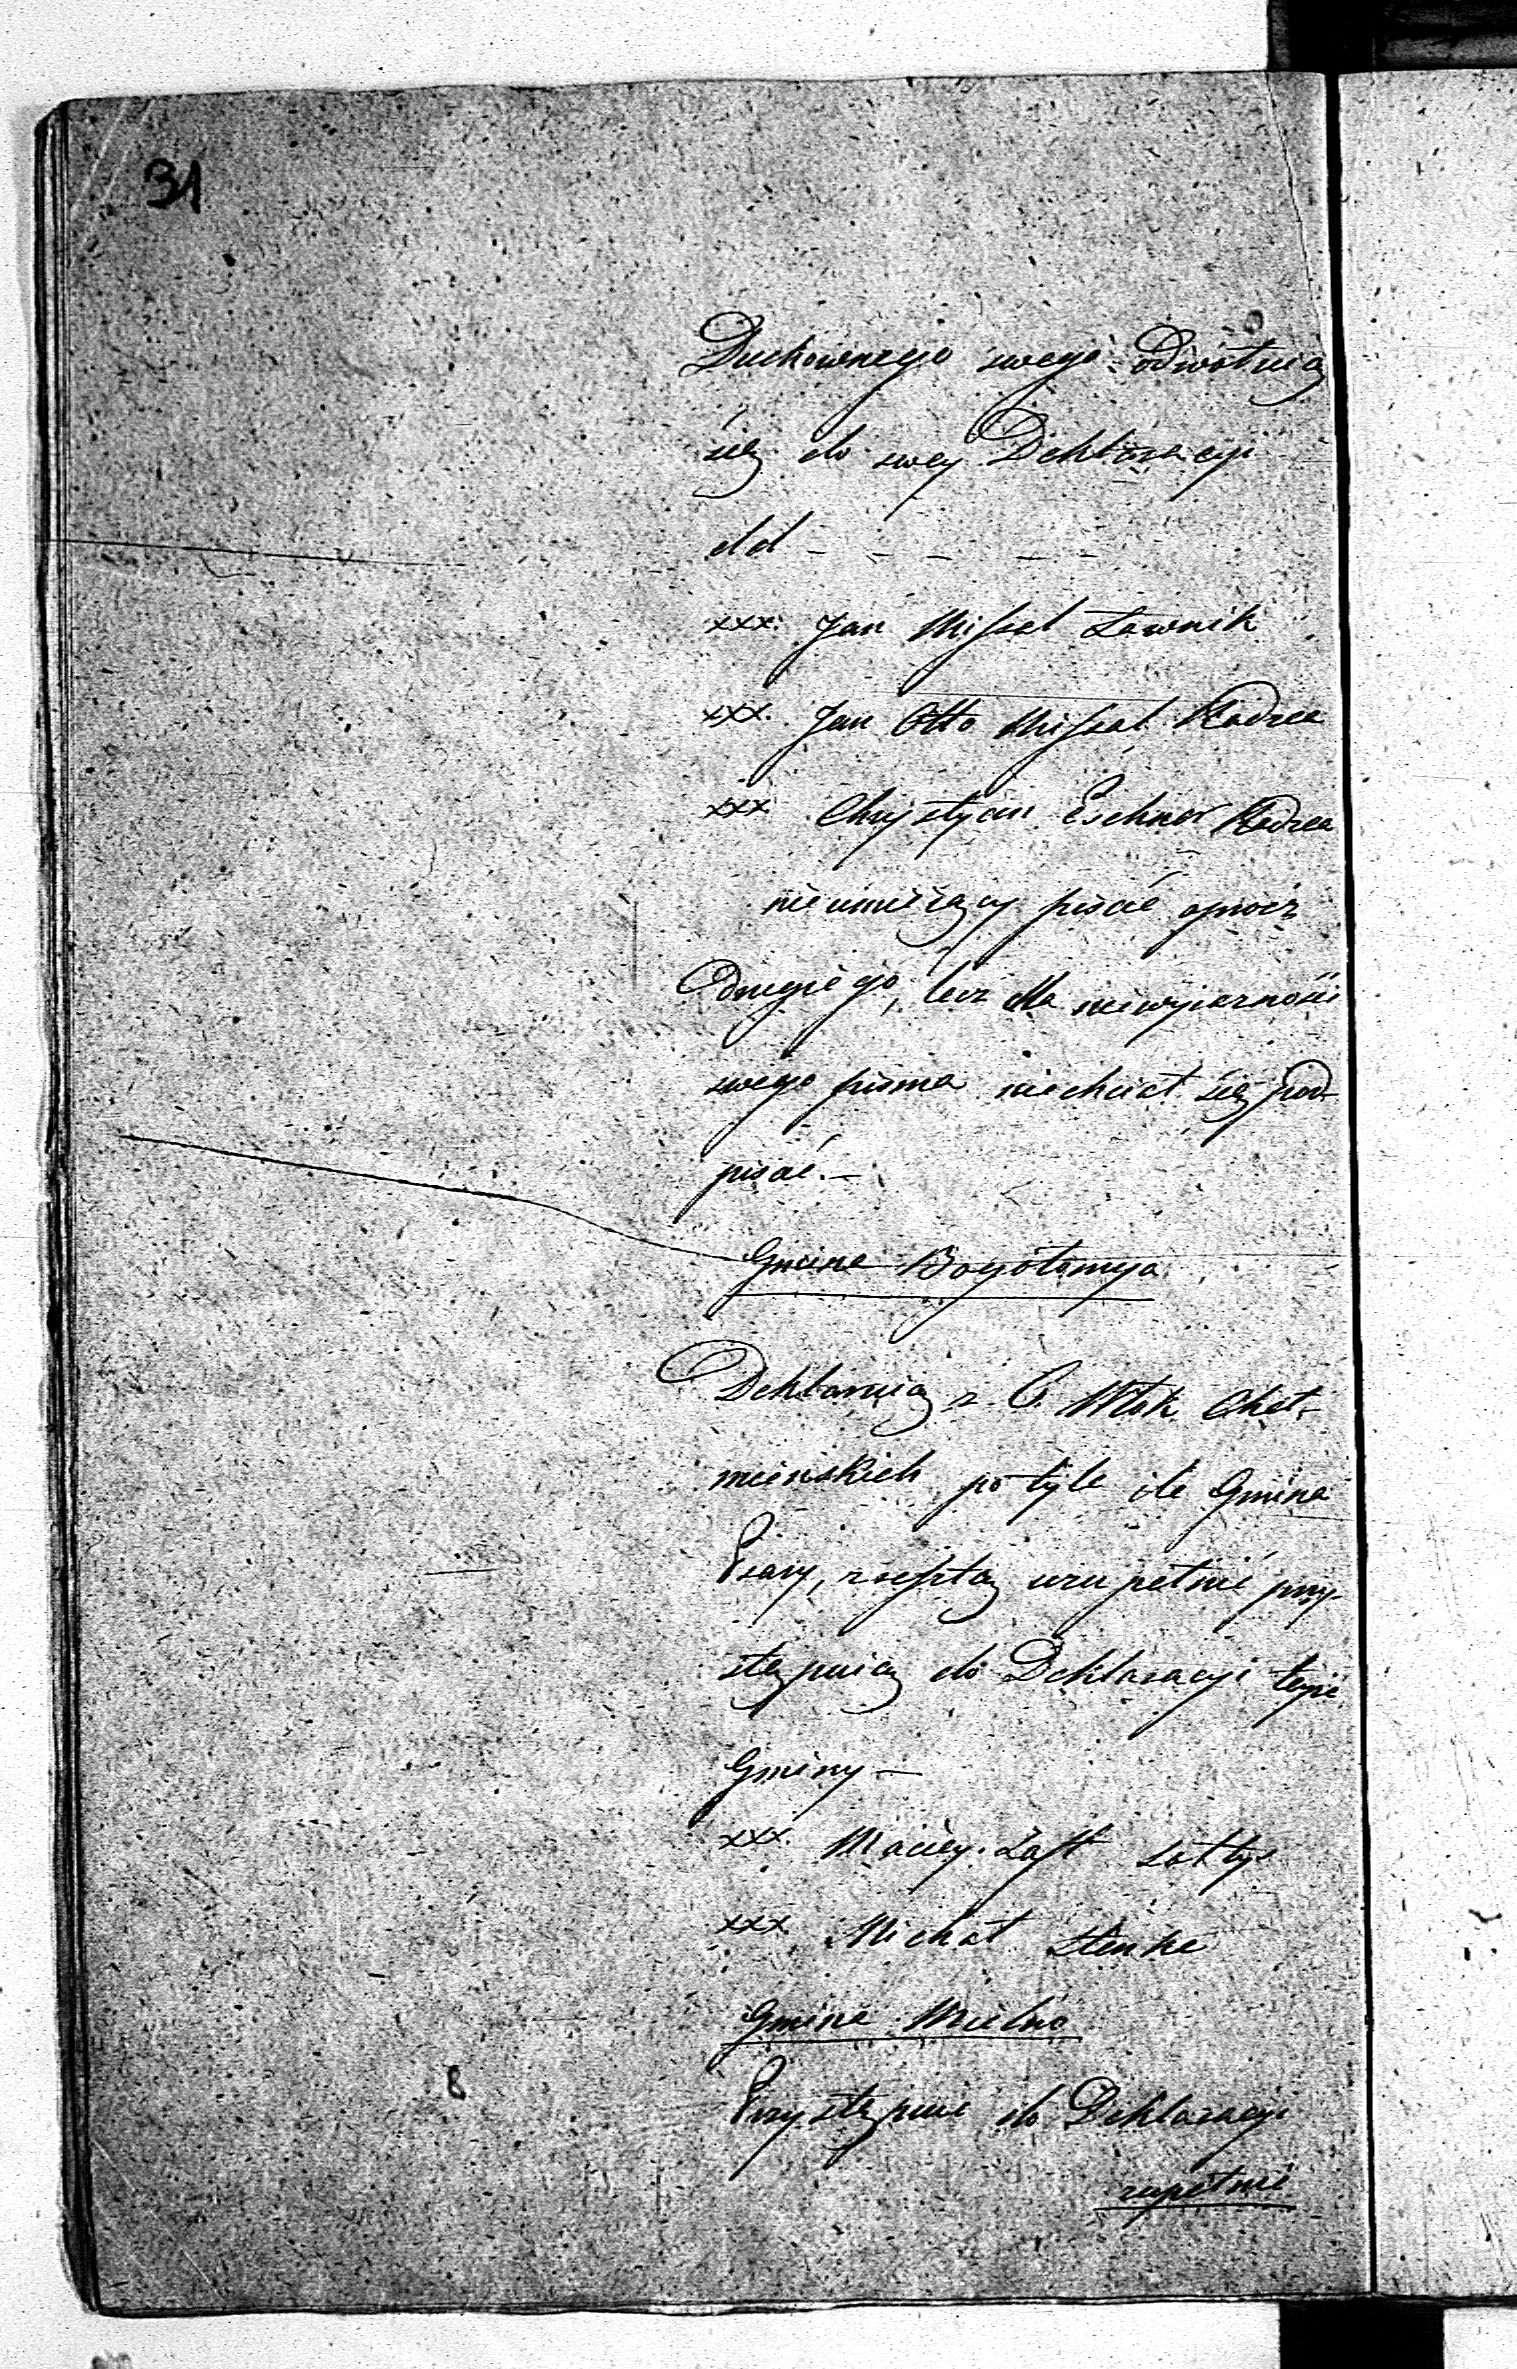 31
Duchownego swego odwołuią
się do swey Deklaracyi
dd - - - - -
xxx. Jan Missal Ławnik
xxx. Jan Otto Missal Radzca
xxx Chrystyan Eschner Radzca
nieumieiący pisać oprócz
drugiego, lecz dla niewyiazności
swego pisma niechciał się pod-
pisać. —
Gmina Bogołomya
Deklaruią z 6. Włók Cheł-
mińskich po tyle ile Gmina
Psary, resztą uzupełnić przy-
stępuią do Deklaracyi teyże
Gminy —
xxx. Maciey Zaft sołtys
xxx. Michał Stenke
Gmina Mielno
Przystępuie do Deklaracyi
zupełnie